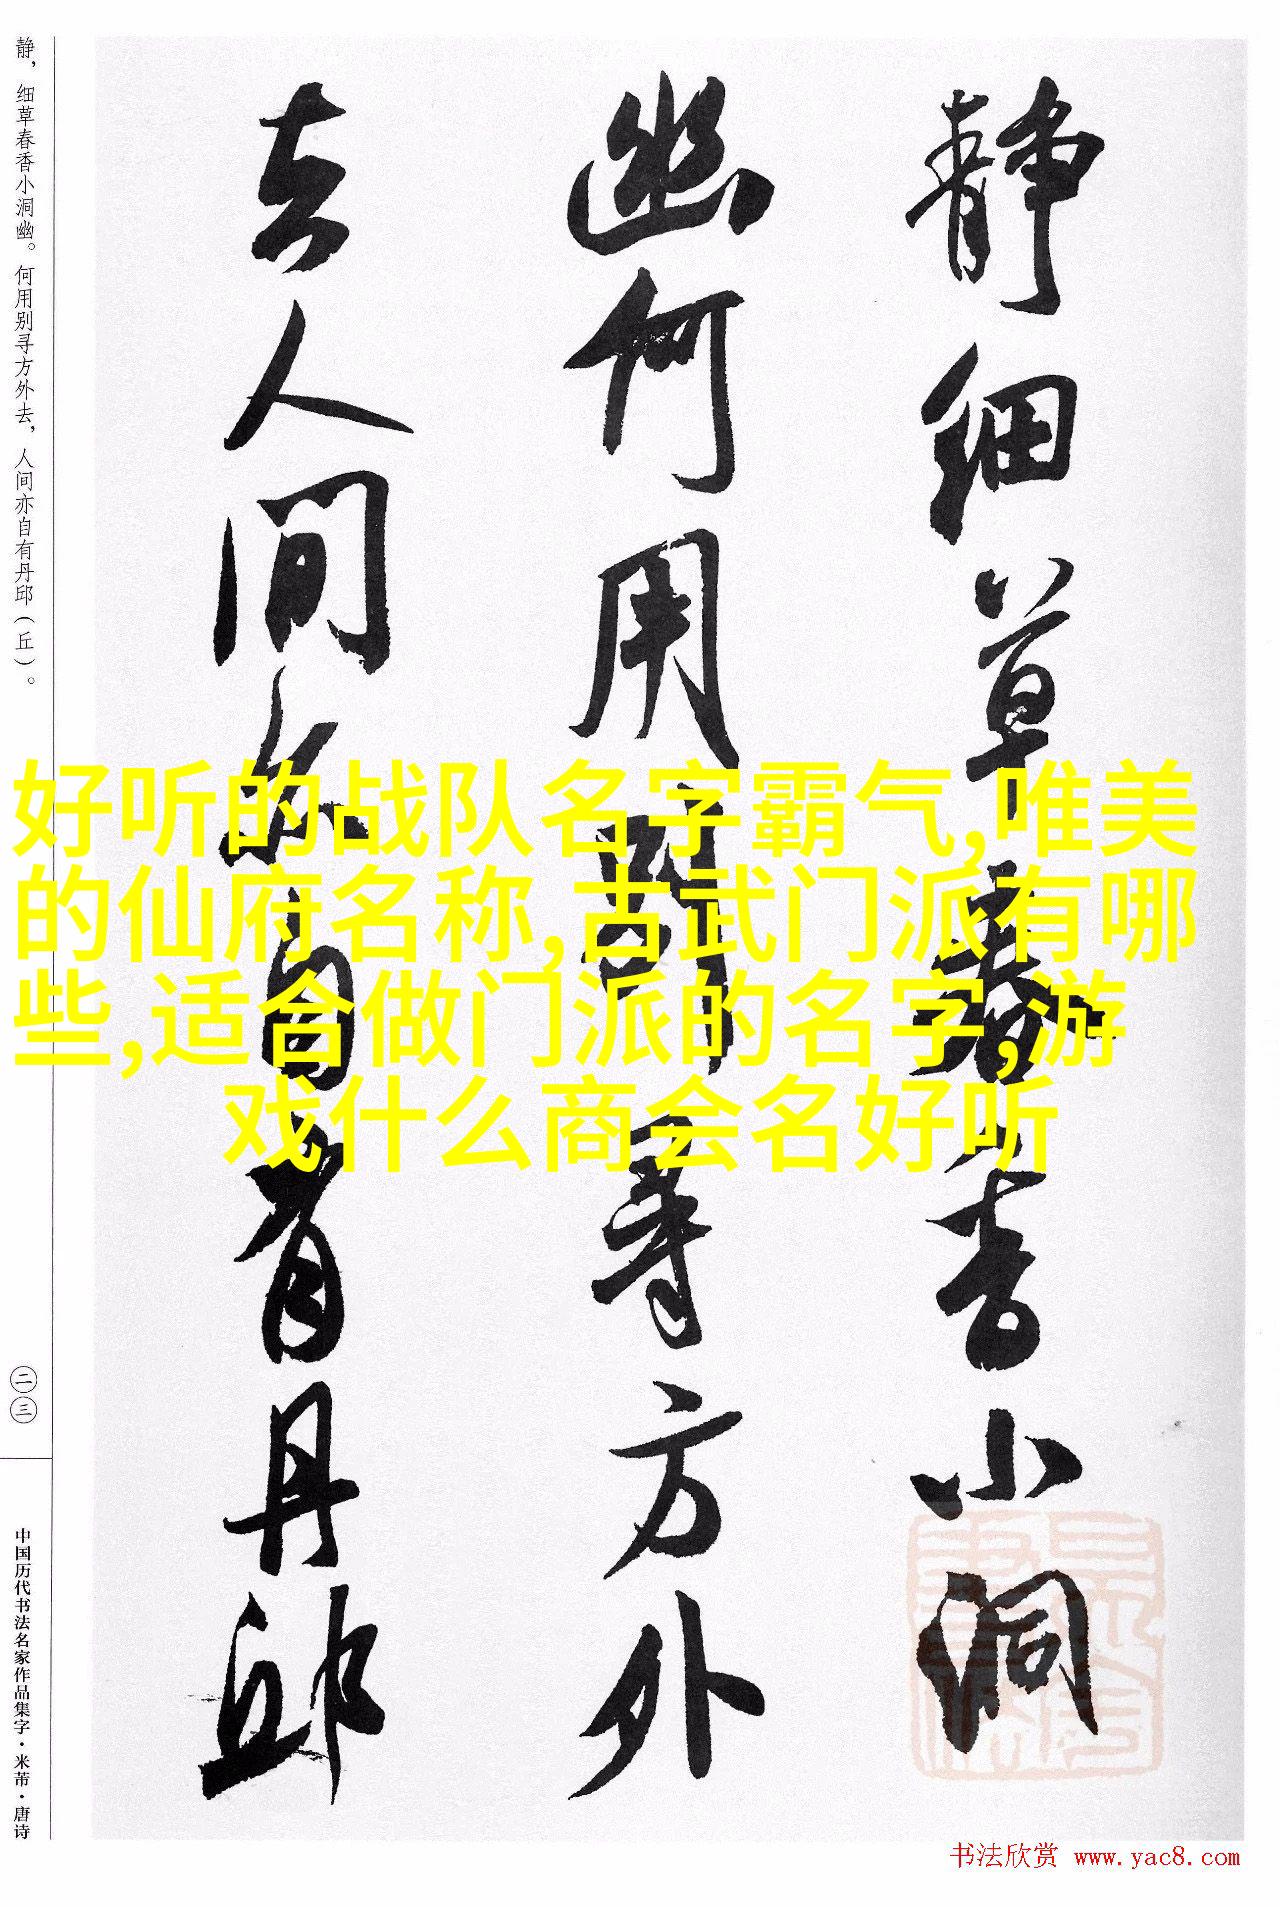 静细草春香小洞
幽何用别寻方外
去人间亦自有丹邱
好听的战队名字霸气,唯美
的仙府名称,古武门派有哪
些,适合做门派的名字,游
戏什么商会名好听
静，细草春香小洞幽。何用别寻方外去，人间亦自有丹邱（丘）。
二三
中国历代书法名家作品集字·米芾·唐诗
书法欣赏 www.yac8.com